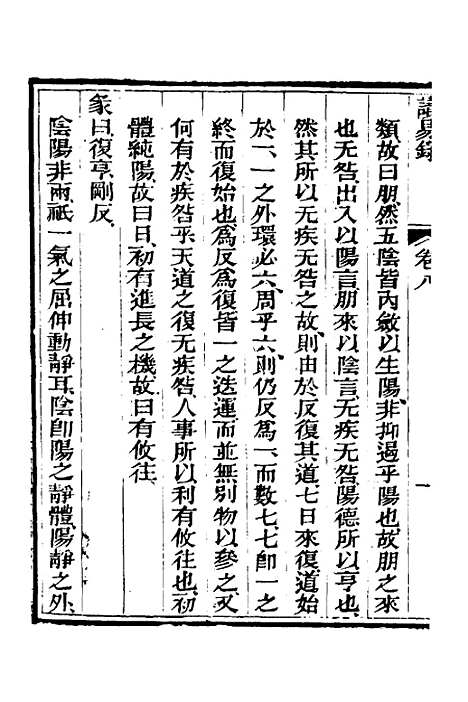 讀易錄
卷八
一
類故曰朋然五陰皆內斂以生陽非抑遏乎陽也故朋之來
也无咎出入以陽言朋來以陰言无疾无咎陽德所以亨也
然其所以无疾无咎之故則由於反復其道七日來復道始
於一一之外環必六周乎六則仍反爲一而數七七卽一之
終而復始也爲反爲復皆一之迭運而並無別物以參之又
何有於疾咎乎天道之復无疾咎人事所以利有攸往也初
體純陽故曰日初有進長之機故曰有攸往
彖曰復亨剛反
陰陽非兩祇一氣之屈伸動靜耳陰卽陽之靜體陽靜之外